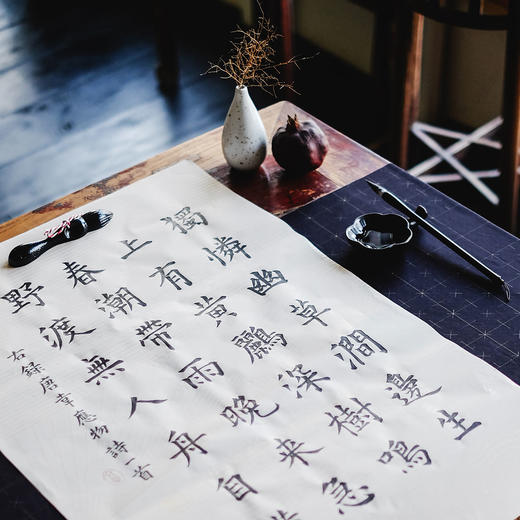 獨憐幽草澗邊生
上有黃鸝深樹鳴
春潮帶雨晚来急
野渡無人舟自
右録唐韋應物詩一首